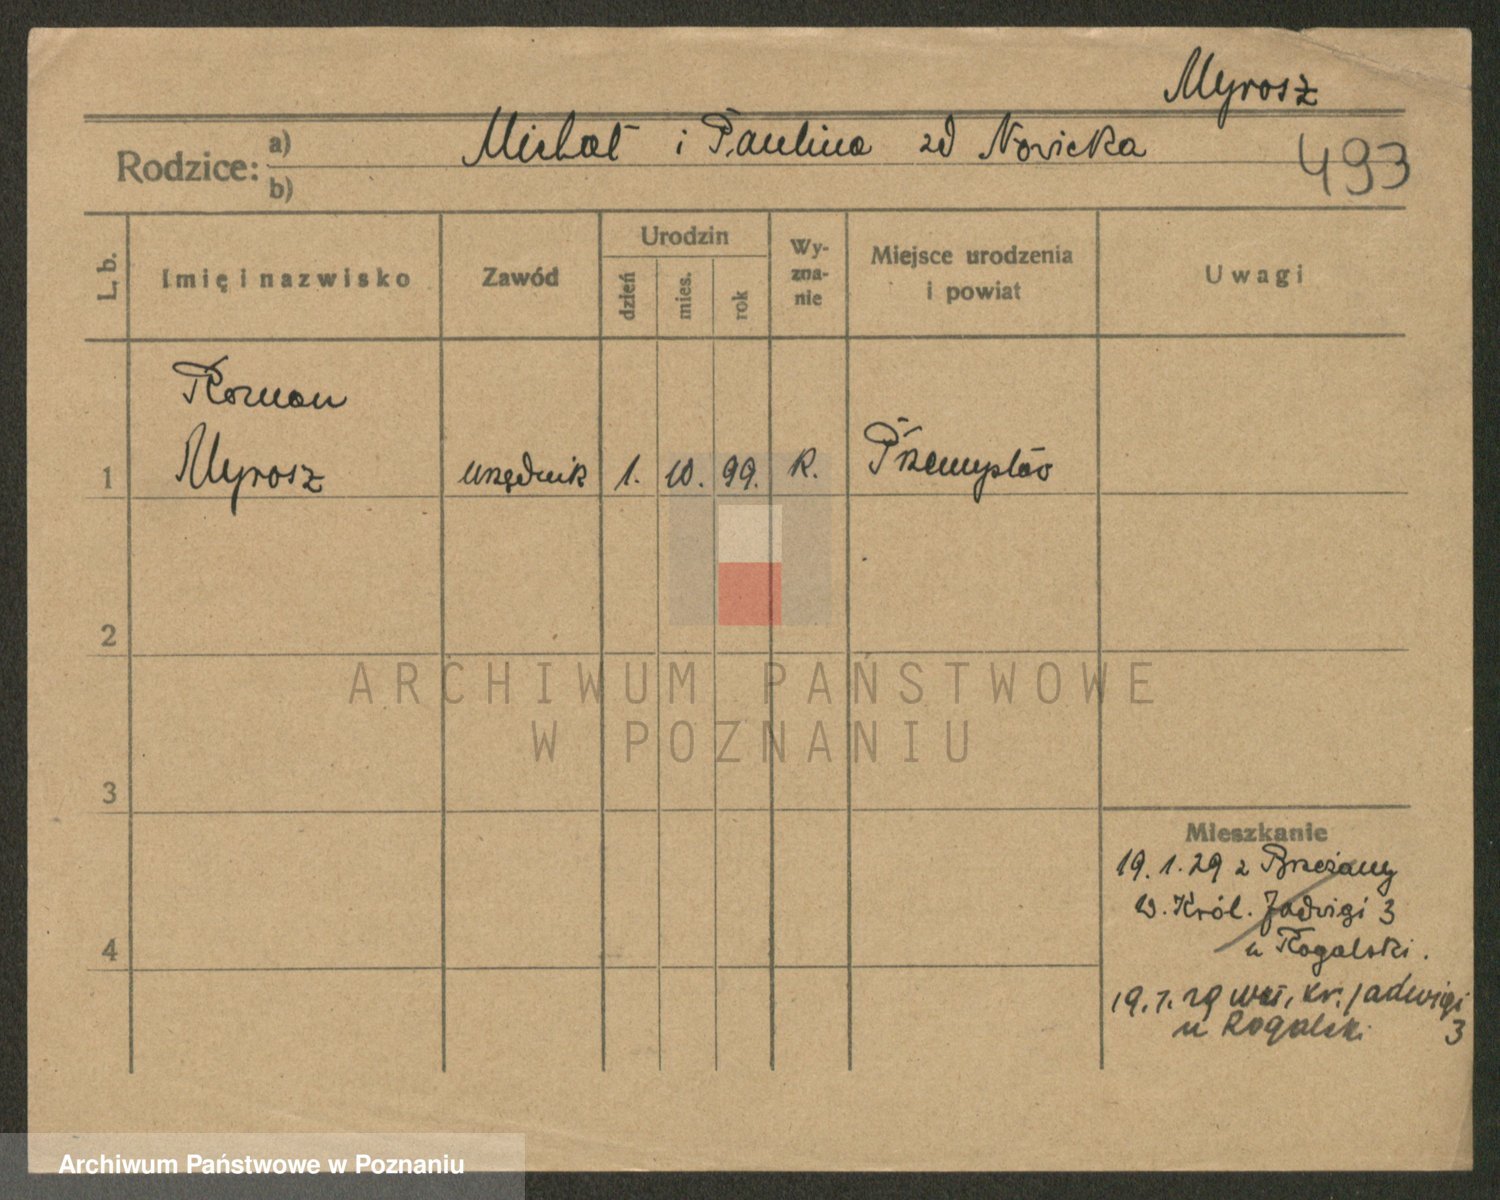 Myrosz
Rodzice: a) Michał i Paulina zd Nowicka
b)
493
L. b.
Imię i nazwisko
Zawód
Urodzin
dzień
mies.
rok
Wy-
zna-
nie
Miejsce urodzenia
i powiat
Uwagi
Roman
1 Myrosz urzędnik 1. 10. 99. R. Przemyślów
2
ARCHIWUM PAŃSTWOWE
W POZNANIU
3
Mieszkanie
19. 1. 29 z Brzeżany
W. Król. Jadwigi 3
4
u Rogalski.
19. 1. 29 wał. kr. Jadwigi
u Rogalski 3
Archiwum Państwowe w Poznaniu